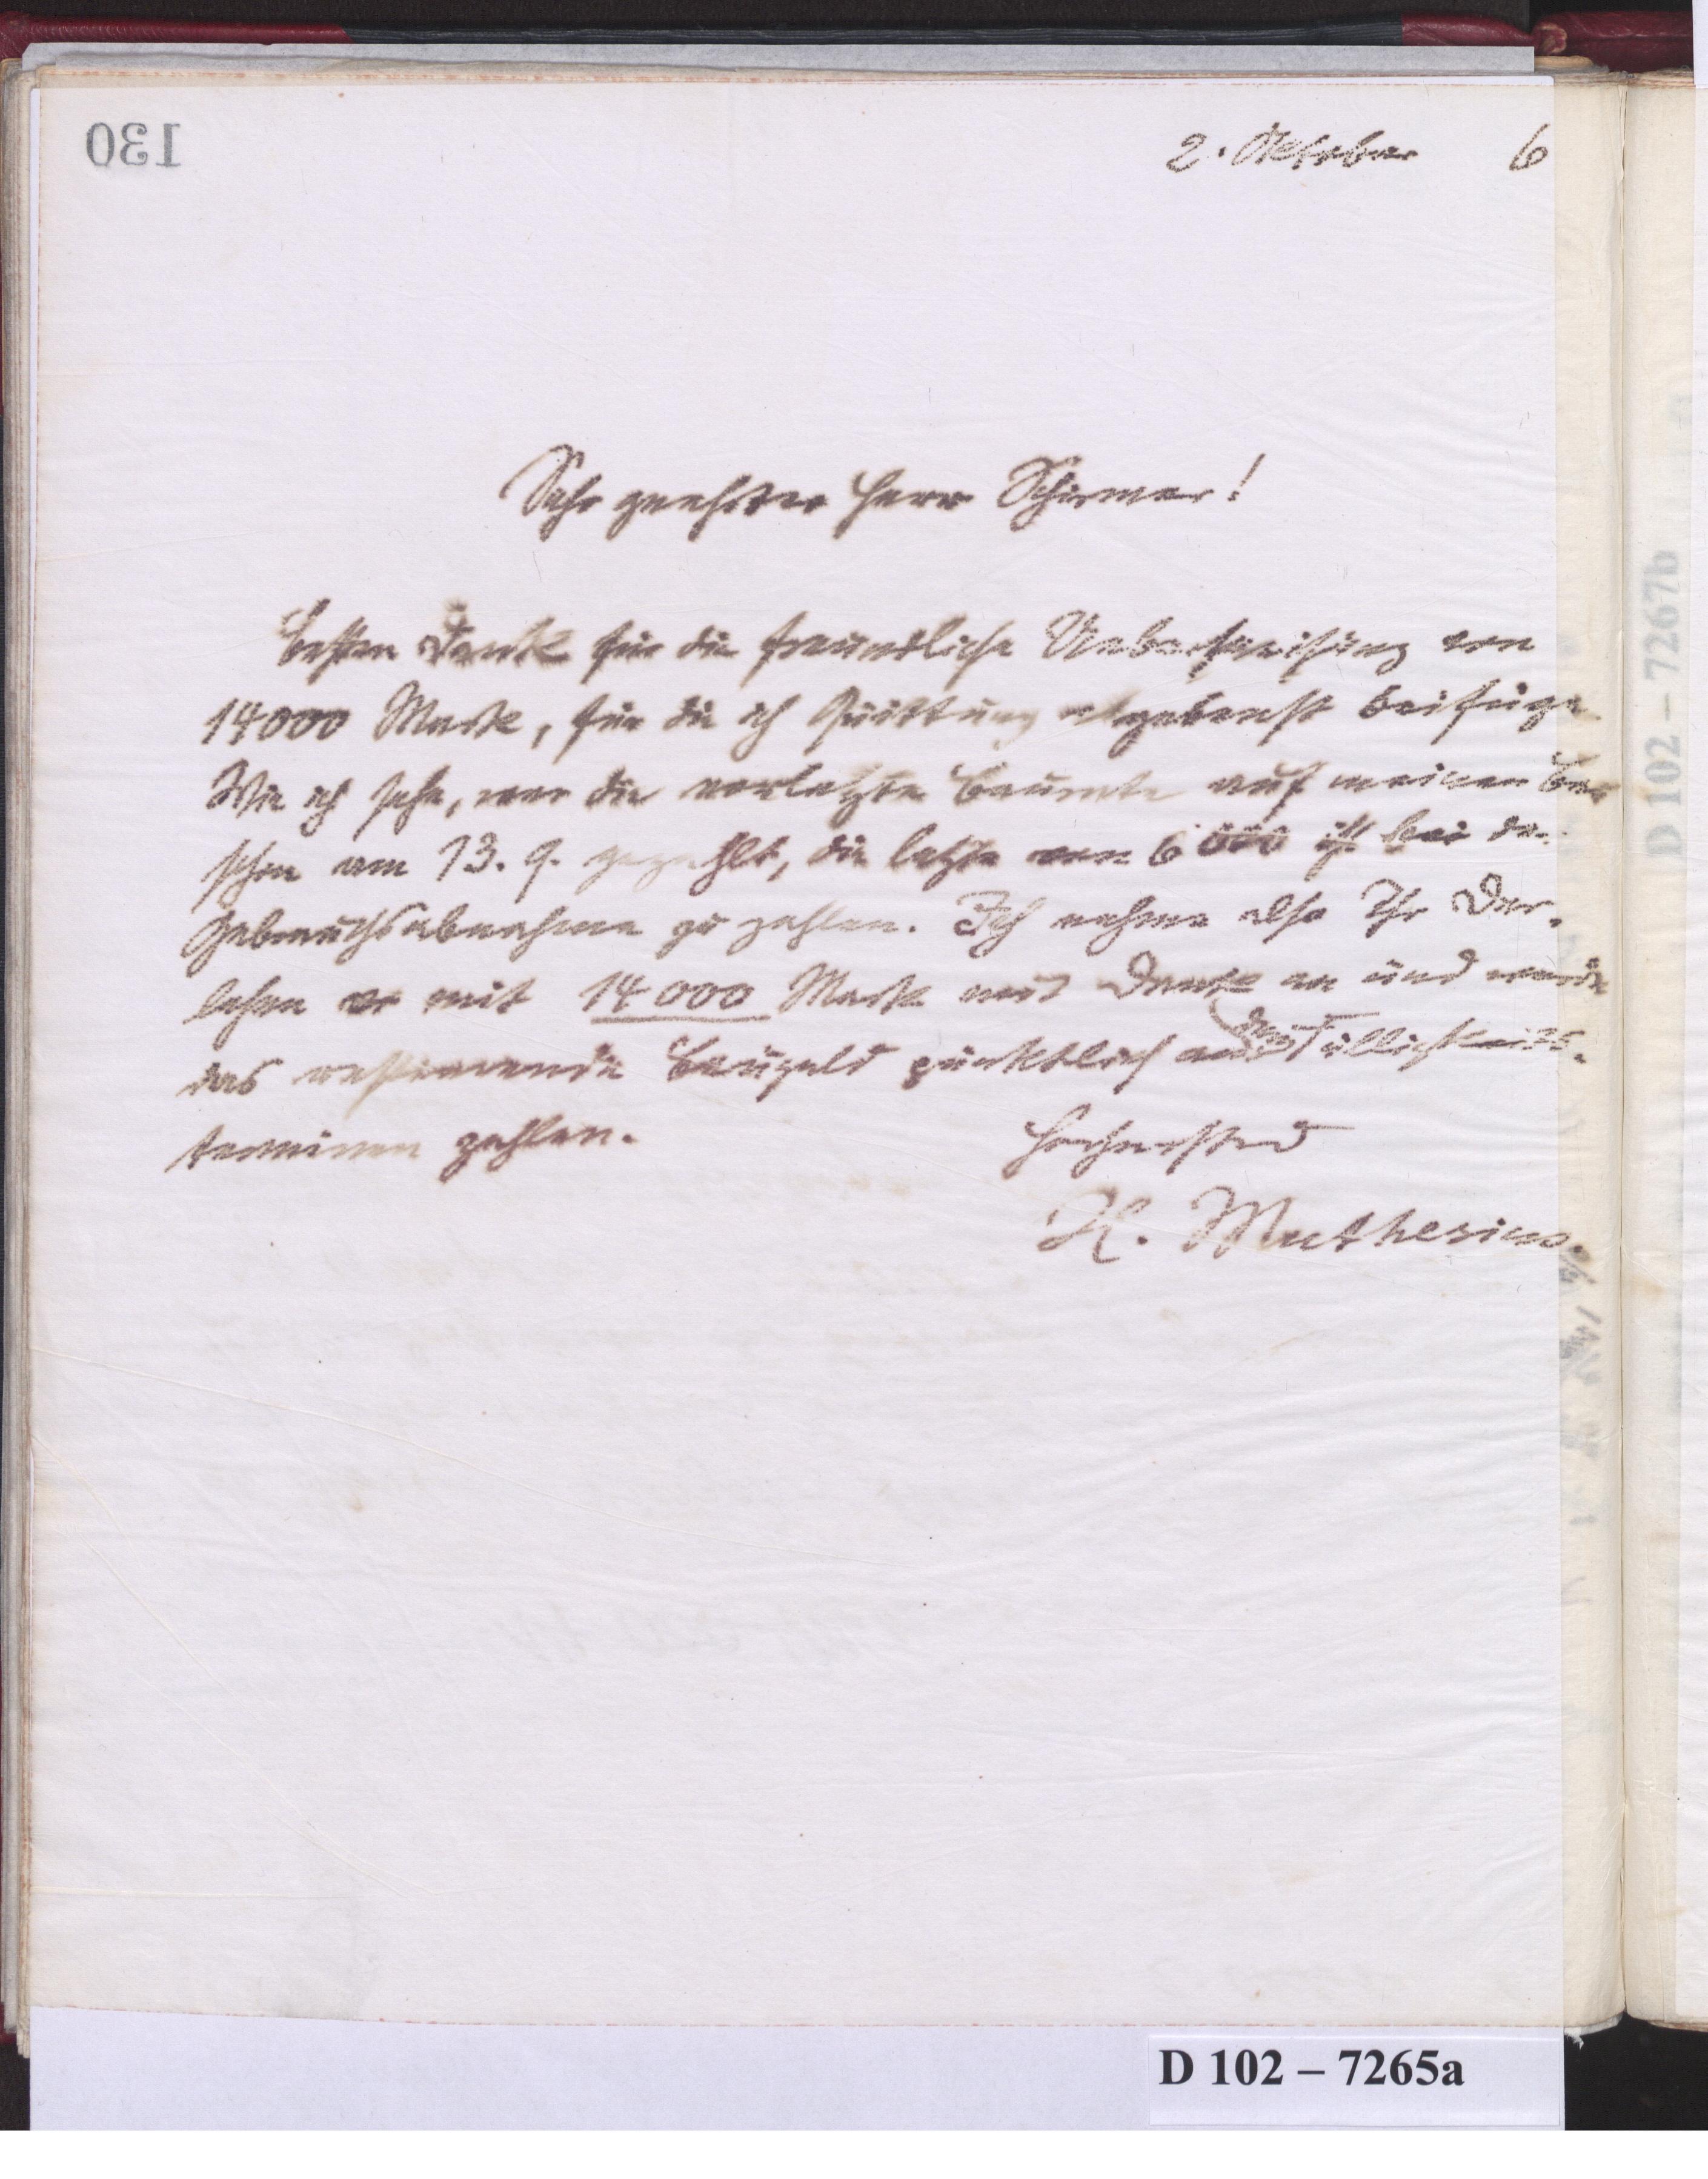 130
2. Oktober 6
Sehr geehrter Herr Schirmer!
Besten Dank für die freundliche Ueberweisung von
14000 Mark, für die ich Quittung ergebenst beifüge.
Wie ich sehe, war die vorletzte Baurate auf meinen
schon am 13. 9. gezahlt, die letzte von 6000 ist bei der
Gebrauchsabnahme zu zahlen. Ich nehme also Ihr Dar-
lehen mit 14000 Mark mit Dank an und werde
das restierende Baugeld pünktlich an den Fälligkeits-
terminen zahlen.
Hochachtend
H. Muthesius.
D 102 – 7265a
D 102 – 7267b